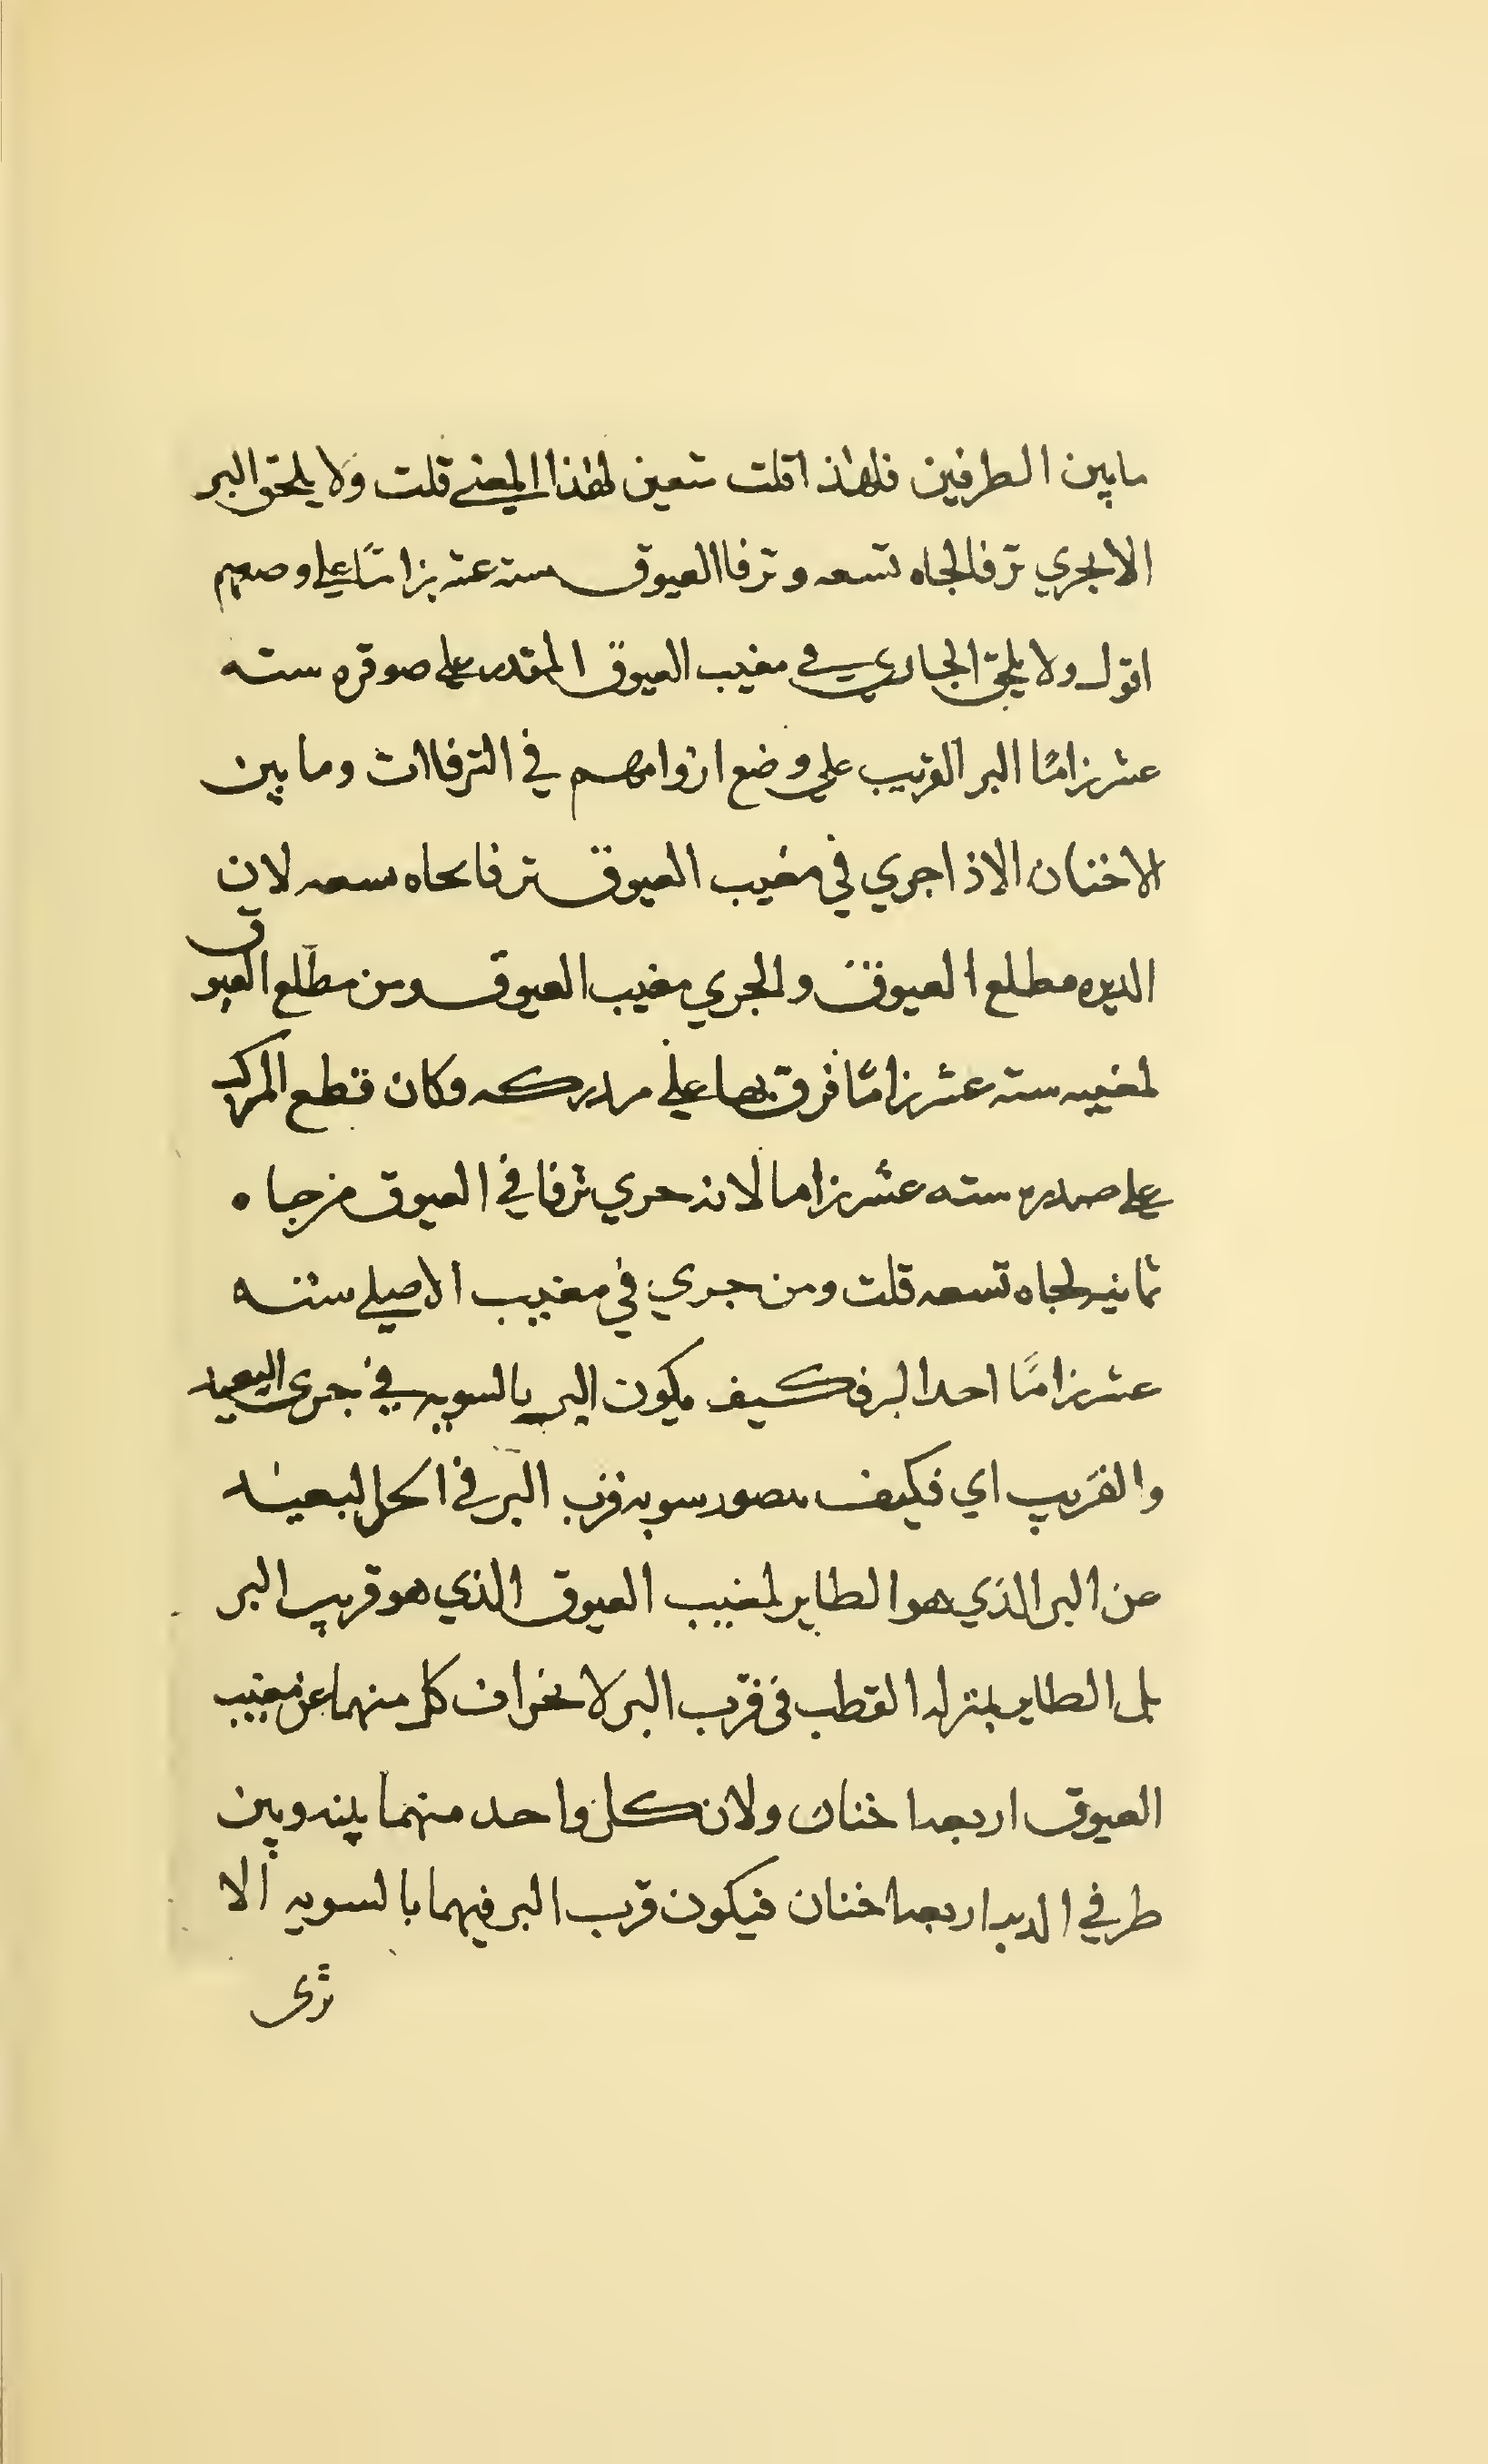 مابين الطرفين فلهذا قلت متعين لهذا المعنى قلت ولا يلحق البر
الابجري ترفا لجاه تسعه وترفا العيوق سته عشر زاما على وضعهم
اقول ولا يلحق الجاري في مغيب العيوق المقدر على صوقره سته
عشر زامًا البر القريب على وضع ازوامهم في الترفاات وما بين
الاخنان الاذا جري في مغيب العيوق ترفا لجاه تسعه لان
الديره مطلع العيوق والمجري مغيب العيوق ومن مطلع العيوق
لمغيبه سته عشر زامًا فرق بها على مدركه وكان قطع المركب
على صدره سته عشر زاما لانه جري ترفا في العيوق من جاه
ثمانيه لجاه تسعه قلت ومن جري في مغيب الاصيلي سته
عشر زامًا احدا البر فكيف يكون البر بالسويه في جرى البعيد
والقريب اي فكيف يتصور سويه قرب البر في المحل البعيد
عن البر الذي هو الطاير لمغيب العيوق الذي هو قريب البر
بل الطاير بمنزله القطب في قرب البر لانحراف كل منهما عن مغيب
العيوق اربعه اخنان ولان كل واحد منهما بينه وبين
طرفي الديره اربعه اخنان فيكون قرب البر فيهما بالسويه الا
ترى